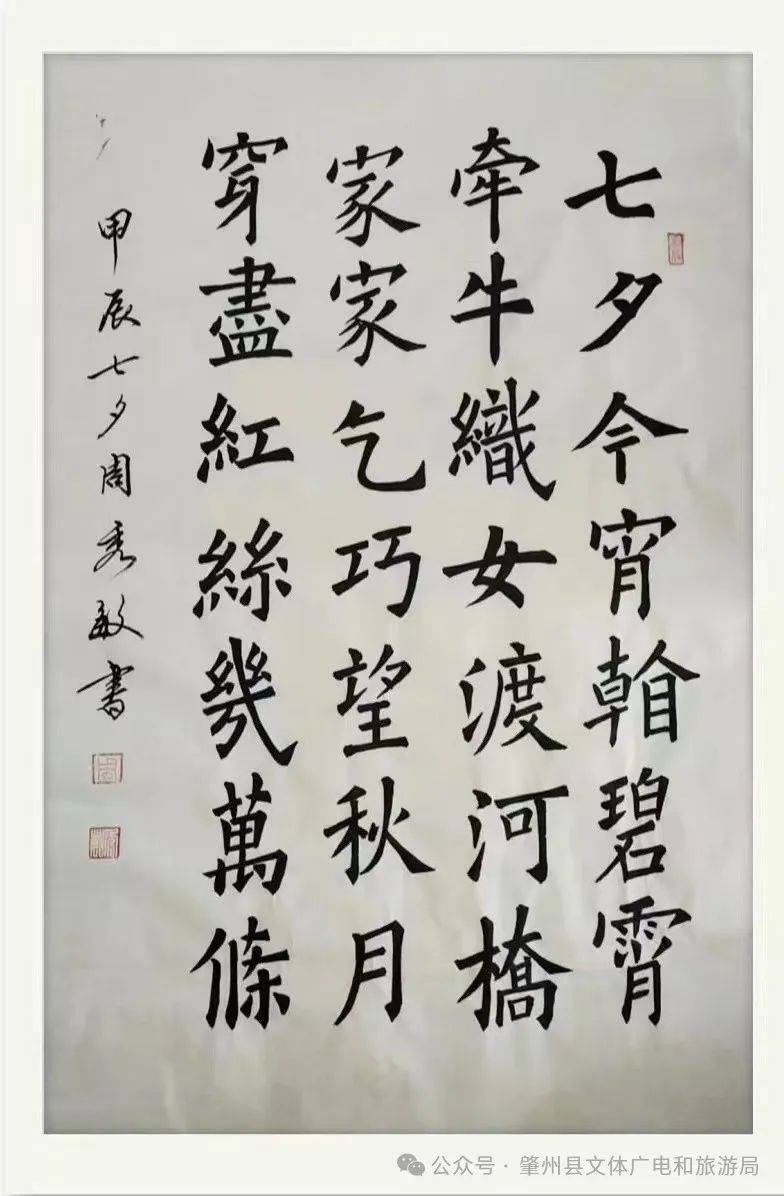 七夕今宵碧霄
牽牛織女渡河橋
家家乞巧望秋月
穿盡紅絲幾萬條
甲辰七夕周秀敏書
公众号·肇州县文体广电和旅游局